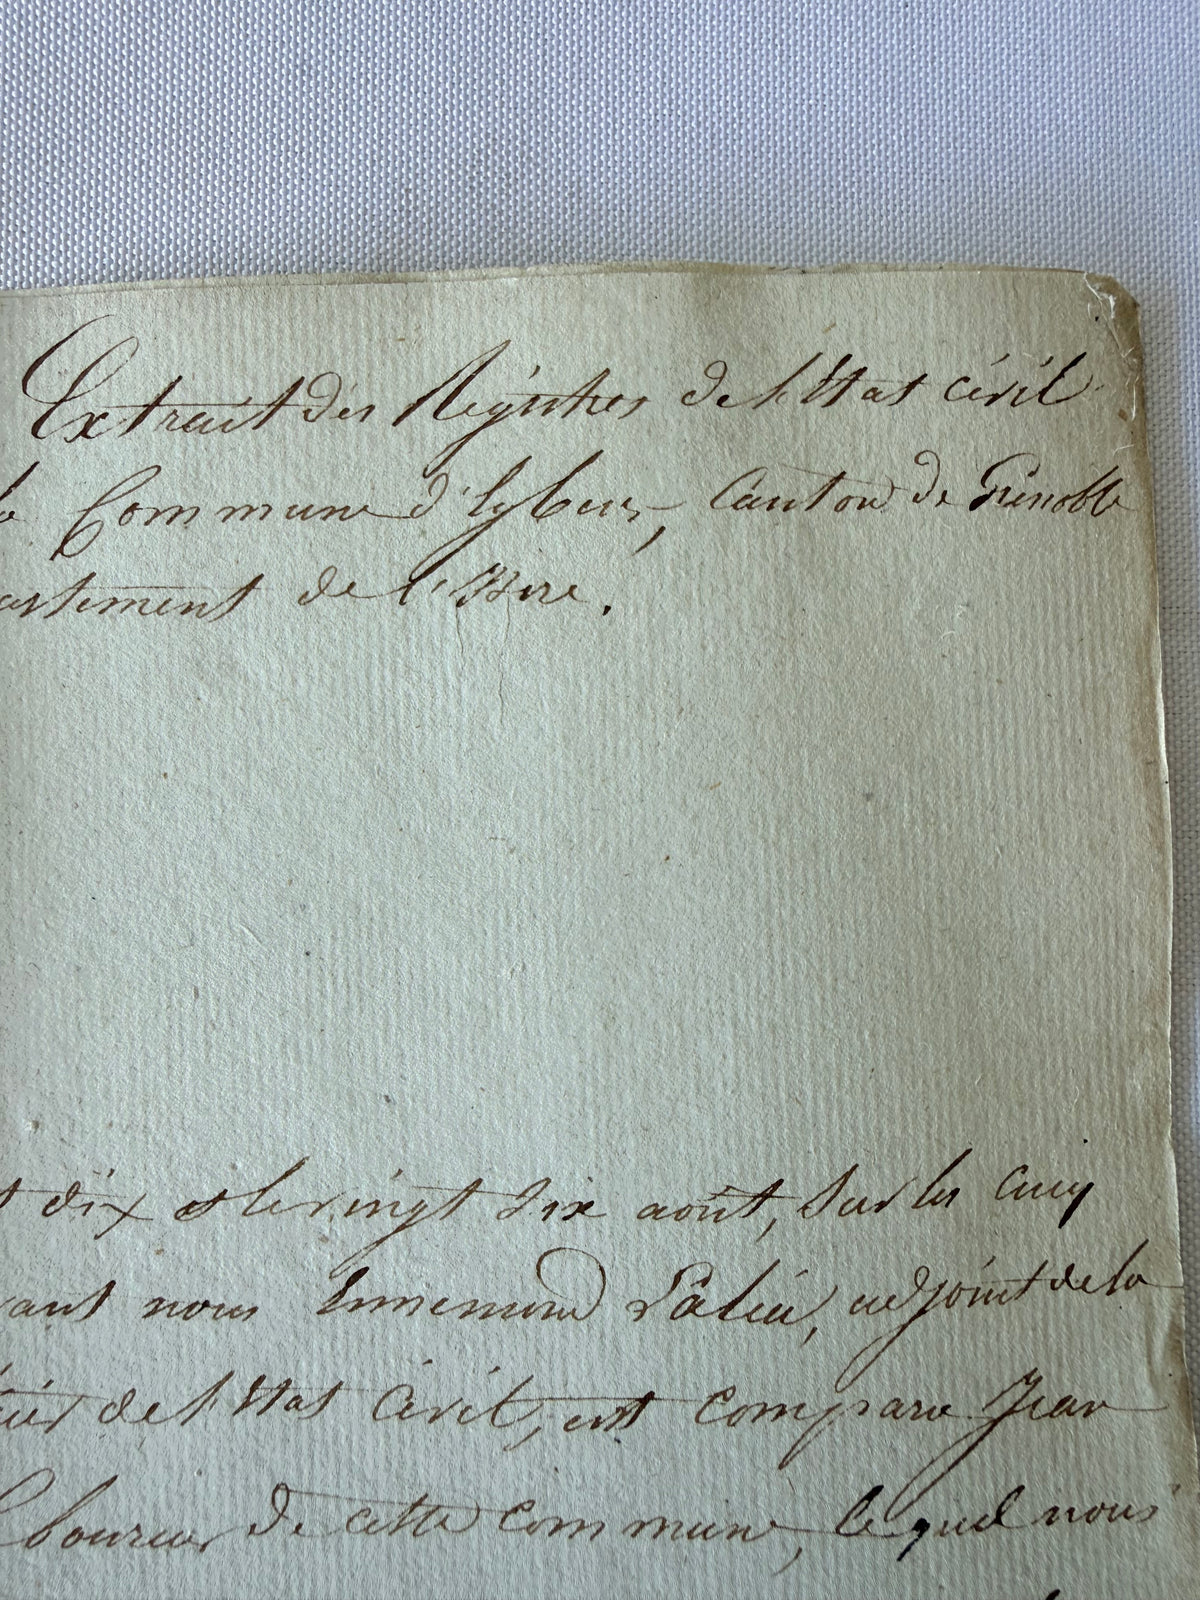 Extrait des Régistres de l'Etat civil
Commune d'Eybens, Canton de Grenoble
artement de l'Isere.
dix et le vingt dix août, sur les cinq
vant nous Ennemond adjoint de la
de l'Etat Civil, est comparu Jean
boureur de cette commune, lequel nous